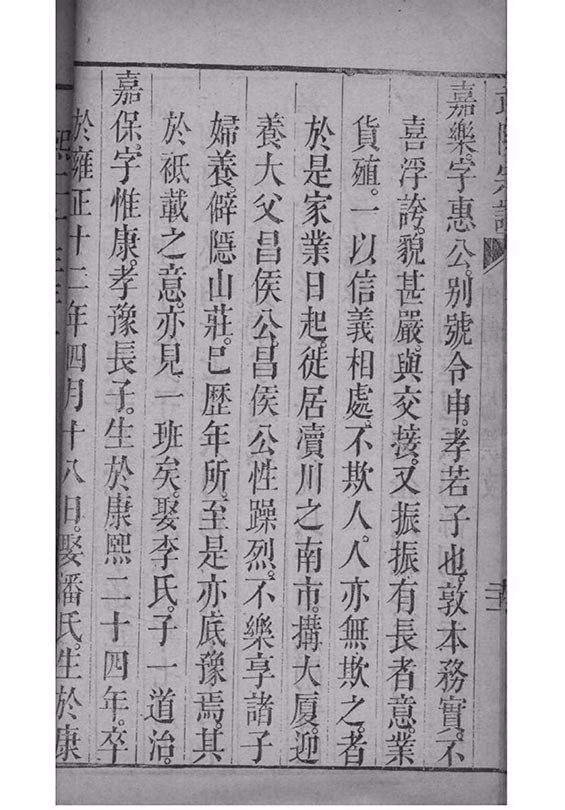 嘉樂。字惠公。别號令申。孝若子也。敦本務實。不
喜浮誇。貌甚嚴。與交接。又振振有長者意。業
貨殖。一以信義相處。不欺人。人亦無欺之。者
於是家業日起。徙居瀆川之南市。搆大厦。迎
養大父昌侯公。昌侯公性躁烈。不樂享諸子
婦養。僻隱山莊。已歷年所。至是亦底豫焉。其
於祗載之意。亦見一班矣。娶李氏。子一道治。
嘉保。字惟康。孝豫長子。生於康熙二十四年。卒
於雍正十二年四月十八日。娶潘氏。生於康